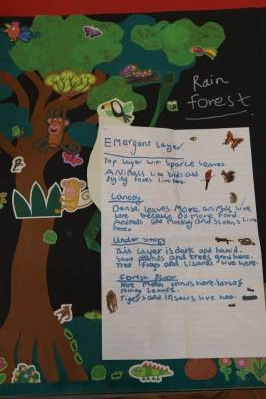 Rain
Forest
EMErgent Layer
Top layer with sparce leaves.
Animals like birds and
flying foxes live here.
Canopy
Dense leaves. More animals live
here because of more food.
Animals like Monkey and Sloths live
here.
Under Storey
This layer is dark and humid.
Some plants and trees grow here.
Tree frogs and Lizards live here.
Forest Floor
Not Much grows here lots of
leaves.
Tigers and Insects live here.
B